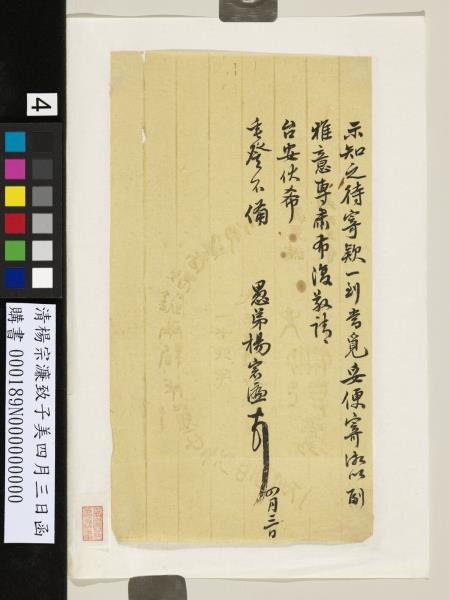 示知之待寄款一到當覓妥便寄泐以副
雅意專肅布復敬請
台安伏希
垂詧不備
愚弟楊宗濂頓
四月三日
4
清楊宗濂致子美四月三日函
購書 000189N000000000